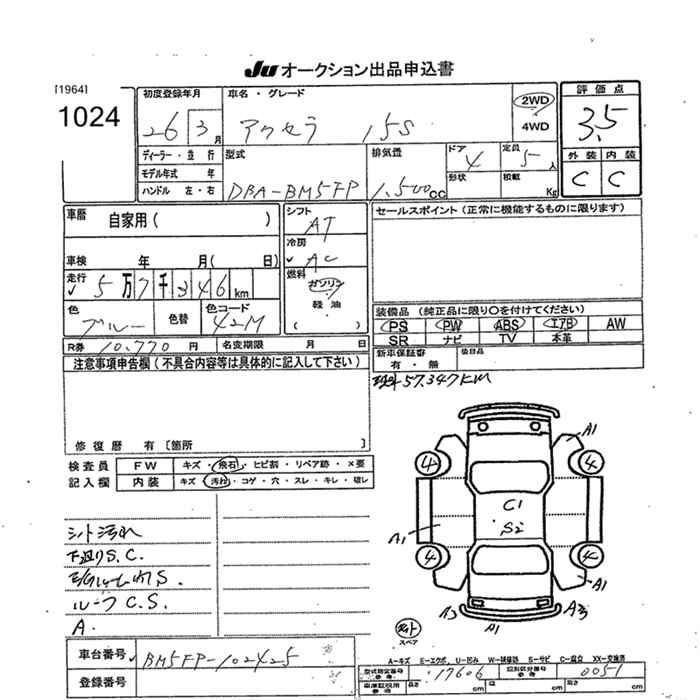 JU オークション出品申込書
[1964]
1024
初度登録年月
26 3 月
車名・グレード
アクセラ 15S
2WD
4WD
評価点
3.5
外装 内装
C C
ディーラー・並行
モデル年式 年
ハンドル 左・右
型式
DBA-BM5FP
排気量
1,500 CC
ドア 4
形状
定員 5 人
積載 Kg
車歴
自家用( )
車検 年 月( 日)
走行
5万7千346 km
色
ブルー
色替
色コード
42M
シフト
AT
冷房
AC
燃料
ガソリン
軽油
( )
セールスポイント(正常に機能するものに限ります)
装備品(純正品に限り○を付けてください)
PS PW ABS エアB AW
SR ナビ TV 本革
新車保証書
有・無
後日品
R券 10,770 円
名変期限 月 日
注意事項申告欄(不具合内容等は具体的に記入して下さい)
57,347KM
修復歴 有[箇所 ]
検査員
記入欄
FW キズ・飛石・ヒビ割・リペア跡・×要
内装 キズ・汚れ・コゲ・穴・スレ・キレ・破レ
シート汚れ
下廻りS.C.
ルーフC.S.
A.
A1
4
4
C1
S2
A1
4
4
A1
A3
A1
A3
スペア
A-キズ E-エクボ、U-凹み W-補修跡 S-サビ C-腐食 XX-交換済
車台番号
BM5FP-102425
登録番号
型式指定番号 17606
類別区分番号 0051
車庫証明用参考
長さ cm
幅 cm
高さ cm